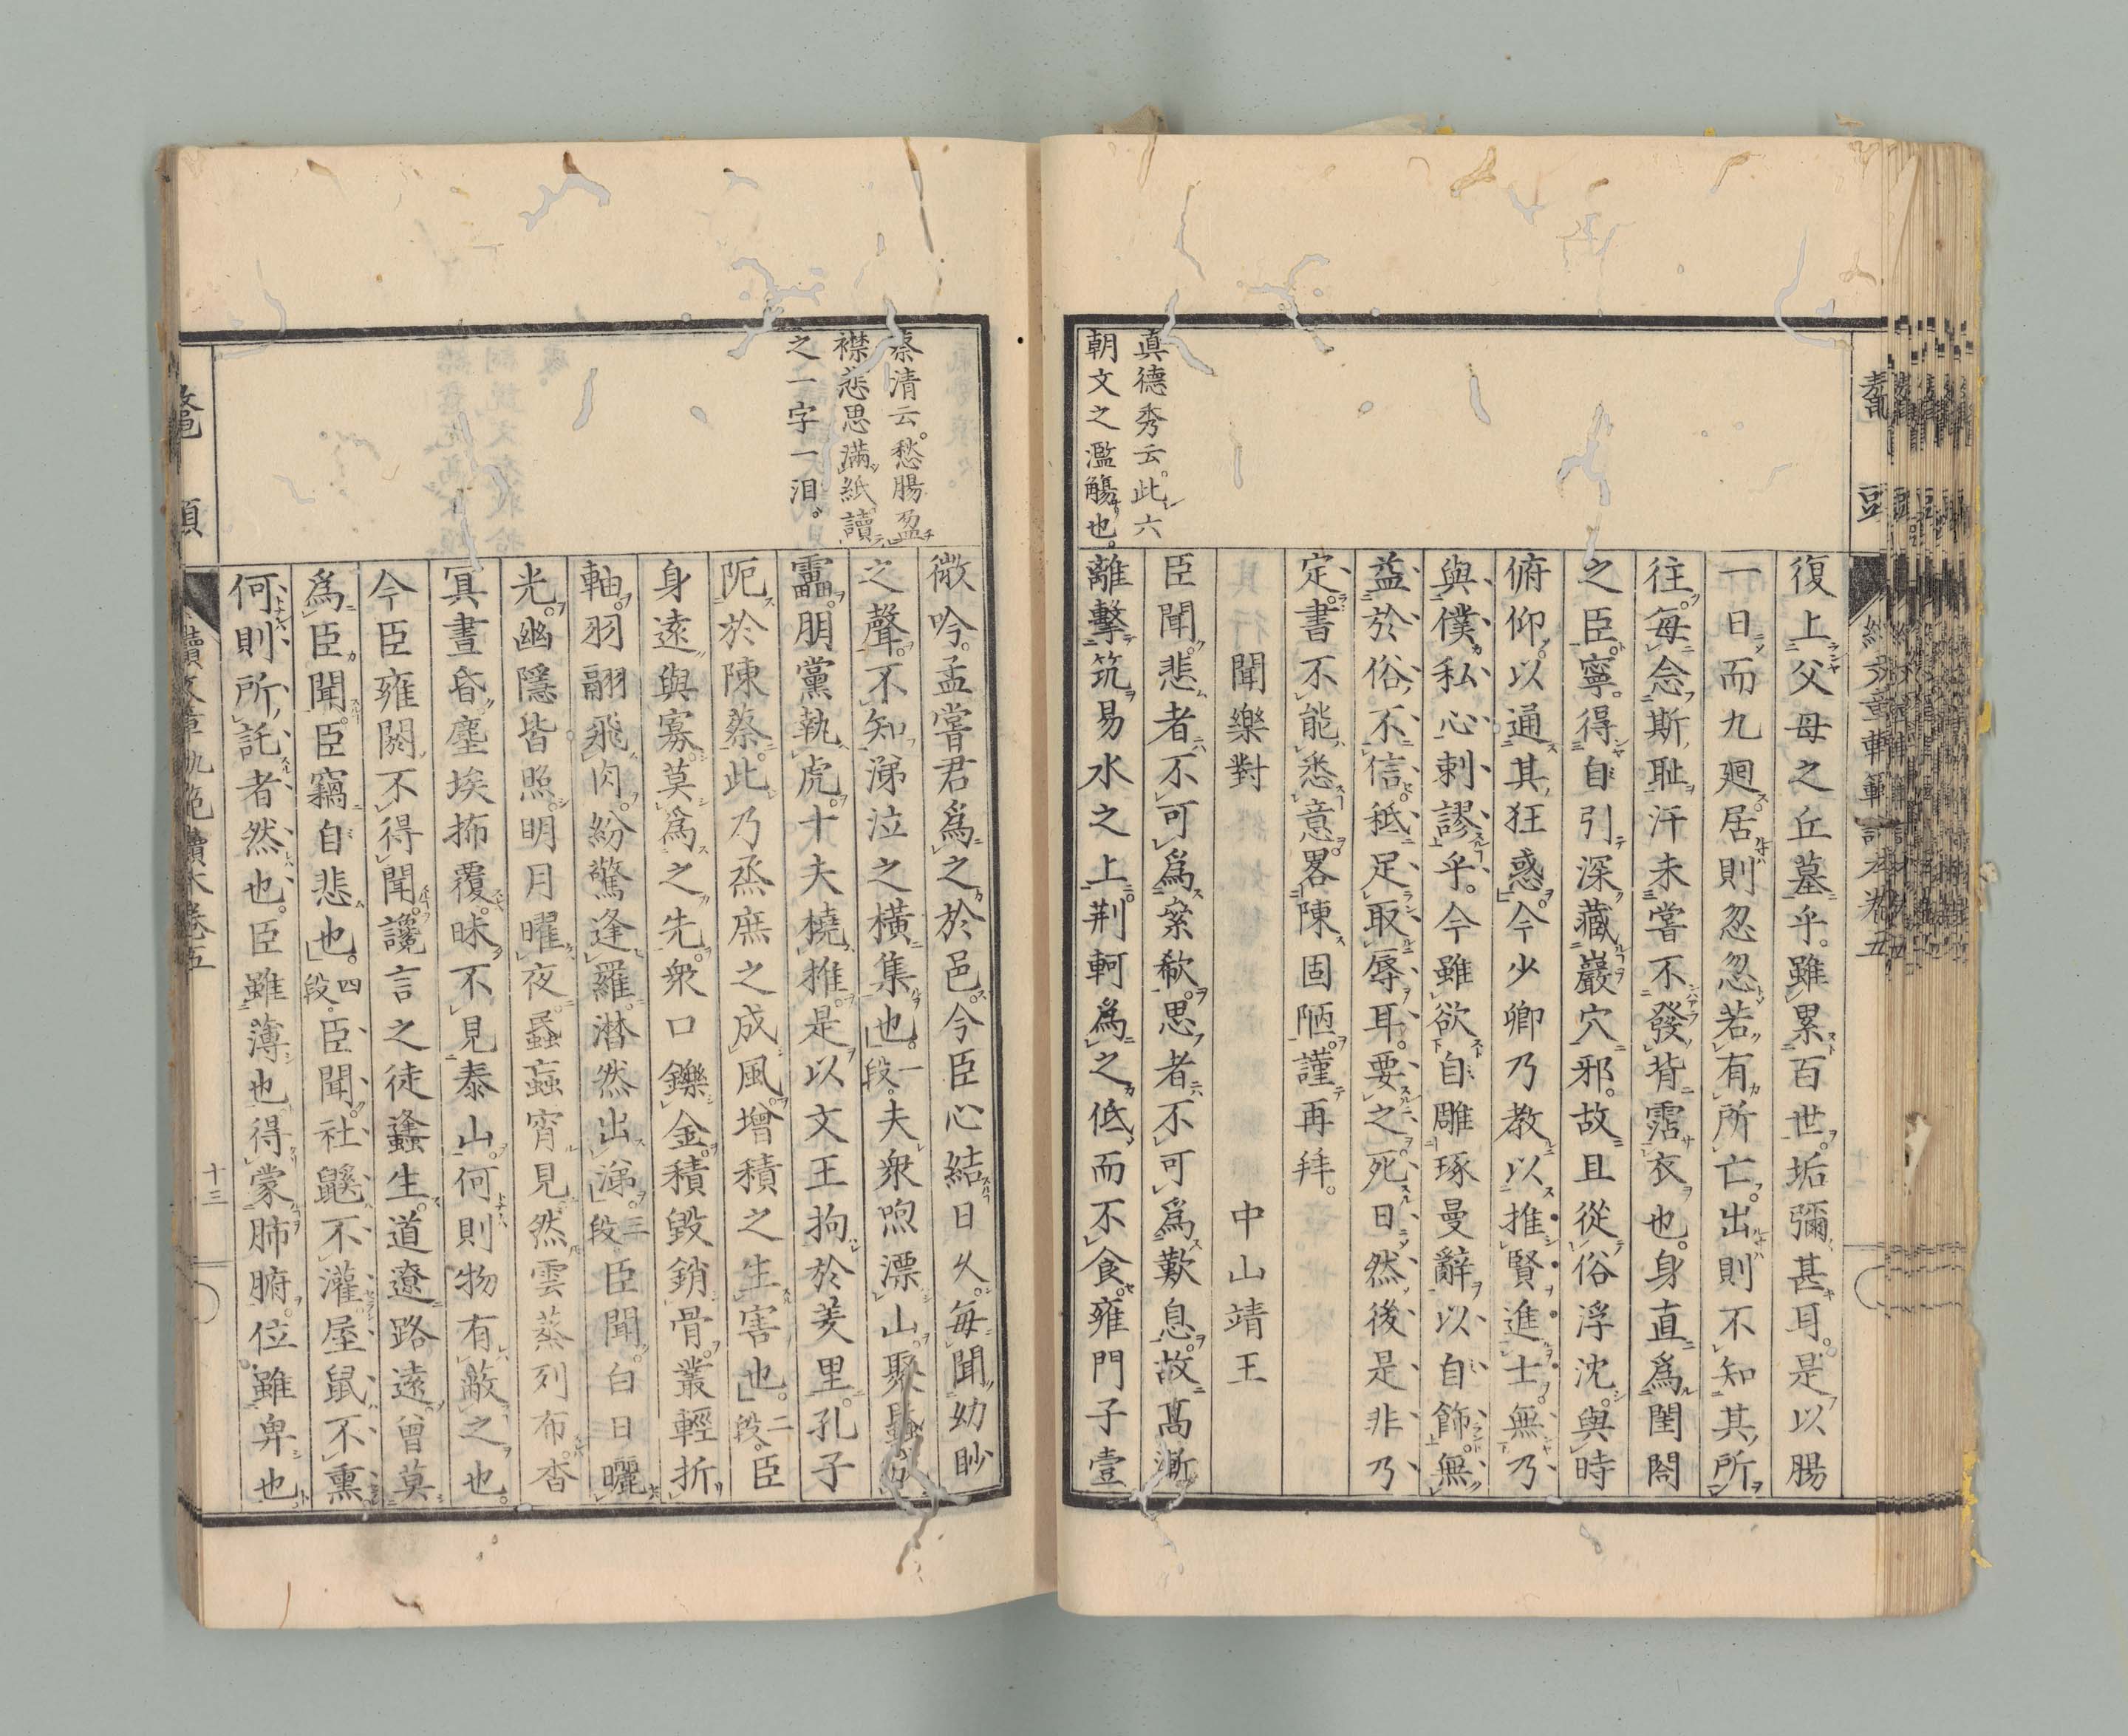 復上父母之丘墓乎。雖累百世。垢彌甚耳。是以腸
一日而九廻居則忽忽若有所亡。出則不知其所
往。每念斯耻汗未嘗不發背霑衣也。身直爲閨閤
之臣。寧得自引深藏巖穴邪。故且從俗浮沈。與時
俯仰。以通其狂惑。今少卿乃教以推賢進士。無乃
與僕私心剌謬乎。今雖欲自雕琢曼辭以自飾。無
益於俗。不信秪足取辱耳。要之死日然後是非乃
定。書不能悉意。畧陳固陋。謹再拜。
聞樂對　中山靖王
臣聞。悲者不可爲絫欷。思者不可爲歎息。故高漸
離擊筑易水之上。荆軻爲之低而不食。雍門子壹
真德秀云。此六
朝文之濫觴也。
微吟。孟嘗君爲之於邑。今臣心結日久。每聞幼眇
之聲。不知涕泣之橫集也。一段。夫衆喣漂山。聚蟁成
靁。朋黨執虎。十夫橈推。是以文王拘於羑里。孔子
阨於陳蔡。此乃烝庶之成風。增積之生害也。二段。臣
身遠與寡。莫爲之先。衆口鑠金。積毀銷骨。叢輕折
軸。羽翮飛肉。紛驚逢羅。潸然出涕。三段。臣聞。白日曬
光。幽隱皆照。明月曜夜。蟁蝱宵見。然雲蒸列布。杳
冥晝昏。塵埃抪覆。昧不見泰山。何則物有蔽之也。
今臣雍閼不得聞。讒言之徒蠭生。道遼路遠。曾莫
爲臣聞。臣竊自悲也。四段。臣聞社鼷不灌。屋鼠不熏。
何則所託者然也。臣雖薄也。得蒙肺腑。位雖卑也。
蔡清云。愁腸盈
襟悲思滿紙讀
之一字一泪。
十三